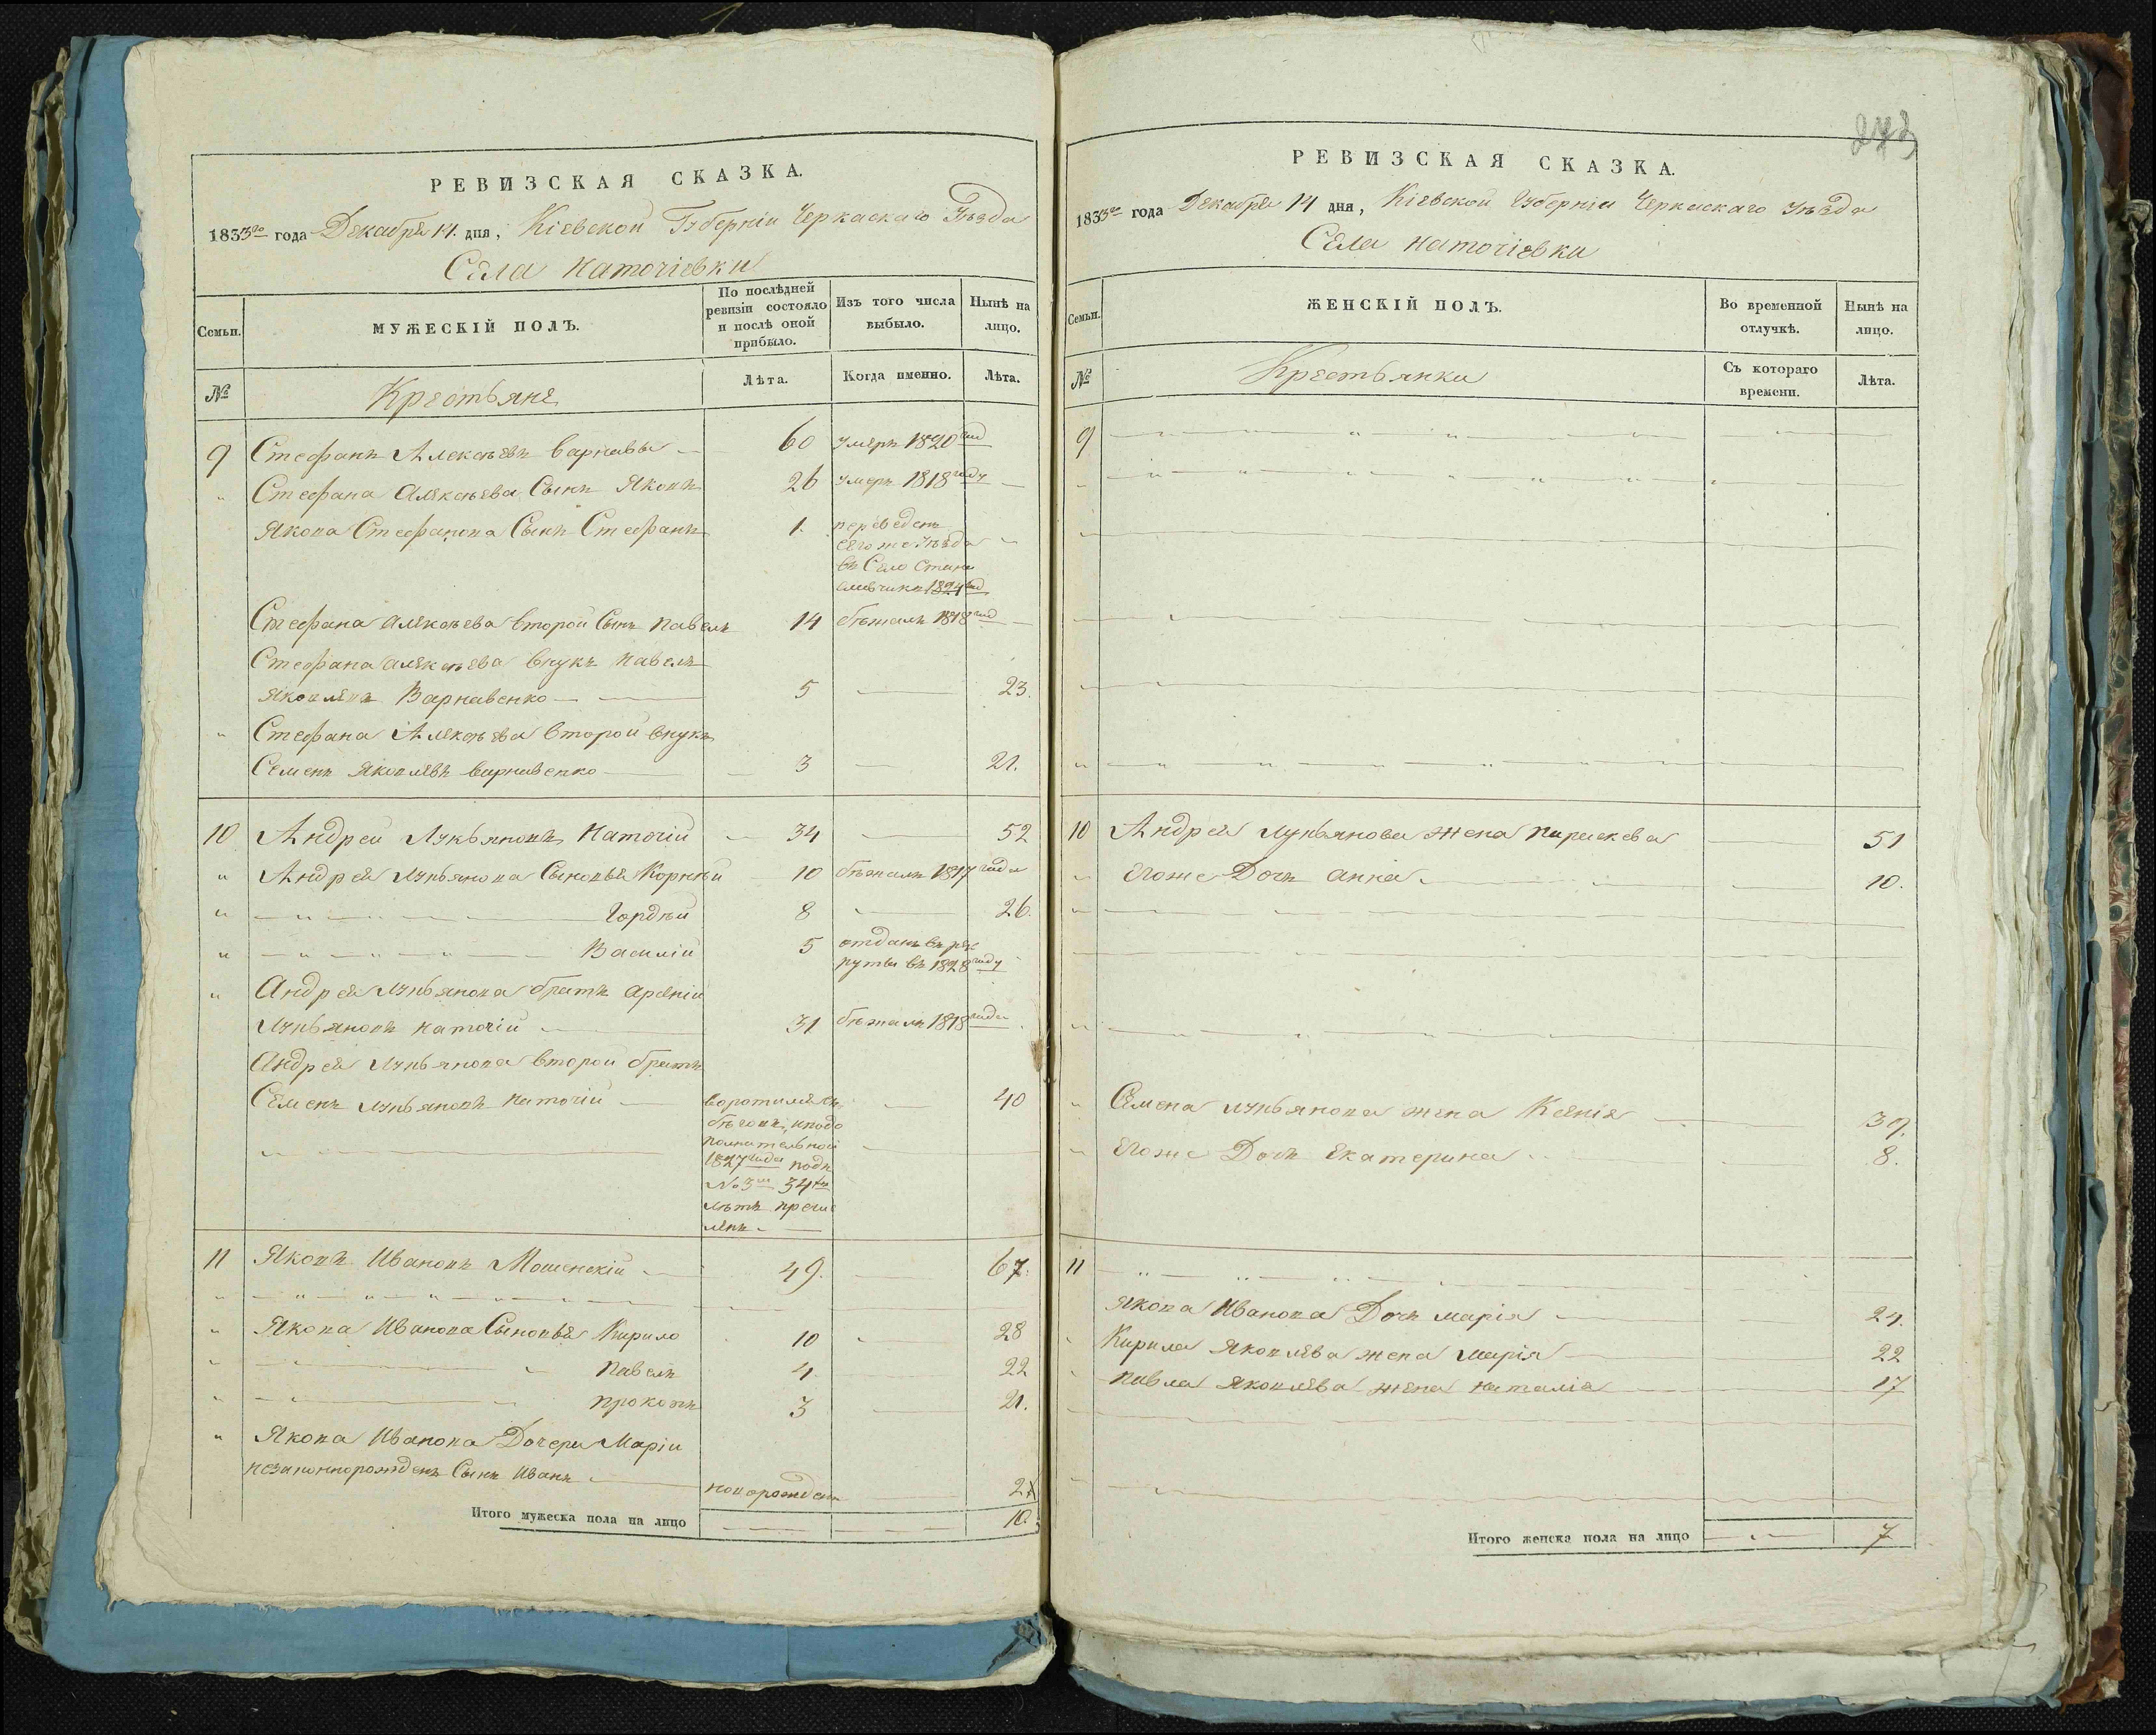 РЕВИЗСКАЯ СКАЗКА.
1833го года Декабря 14. дня, Кіевской Губерніи Черкаскаго Уѣзда
Села Наточіевки
Семьи.
МУЖЕСКІЙ ПОЛЪ.
По послѣдней ревизіи состояло и послѣ оной прибыло.
Изъ того числа выбыло.
Нынѣ на лицо.
№
Крестьяне
Лѣта.
Когда именно.
Лѣта.
9 Стефанъ Алексѣевъ Варнавы 60 умеръ 1820 год
Стефана Алексѣева Сынъ Яковъ 26 умеръ 1818 году
Якова Стефанова Сынъ Стефанъ 1. переведенъ
тогоже Уѣзда
въ Село
1824 год
Стефана Алексѣева второй Сынъ Павелъ 14 бѣжалъ 1818 год
Стефана Алексѣева внукъ Павелъ
Яковлевъ Варнавенко 5 23.
Стефана Алексѣева второй внукъ
Семенъ Яковлевъ Варнавенко 3 21.
10 Андрей Лукьяновъ Наточій 34 52
Андрея Лукьянова Сыновья Корнѣй 10 бѣжалъ 1817 года
Гордѣй 8 26.
Василій 5 отданъ въ рек
руты въ 1828 году
Андрея Лукьянова братъ Арсеній
Лукьяновъ Наточій 31 бѣжалъ 1818 года
Андрея Лукьянова второй братъ
Семенъ Лукьяновъ Наточій 40
воротился съ
бѣговъ, и по до
полнительной
1827 года подъ
№ 3м 34хъ
лѣтъ причи
ленъ
11 Яковъ Ивановъ Мошенскій 49. 67.
Якова Иванова Сыновья Кирило 10 28
Павелъ 4 22
Прокопъ 3 21.
Якова Иванова Дочери Маріи
незаконнорожденъ Сынъ Иванъ новорожденъ 2
Итого мужеска пола на лицо 10.
243
РЕВИЗСКАЯ СКАЗКА.
1833го года Декабря 14 дня, Кіевской Губерніи Черкаскаго Уѣзда
Села Наточіевки
Семьи.
ЖЕНСКІЙ ПОЛЪ.
Во временной отлучкѣ.
Нынѣ на лицо.
№
Крестьянки
Съ котораго времени.
Лѣта.
9
10 Андрея Лукьянова жена Параскева 51
Егоже Дочь Анна 10.
Семена Лукьянова жена Ксенія 39.
Егоже Дочь Екатерина 8.
11
Якова Иванова Дочь Марія 24.
Кирила Яковлева жена Марія 22
Павла Яковлева жена Наталія 17
Итого женска пола на лицо 7